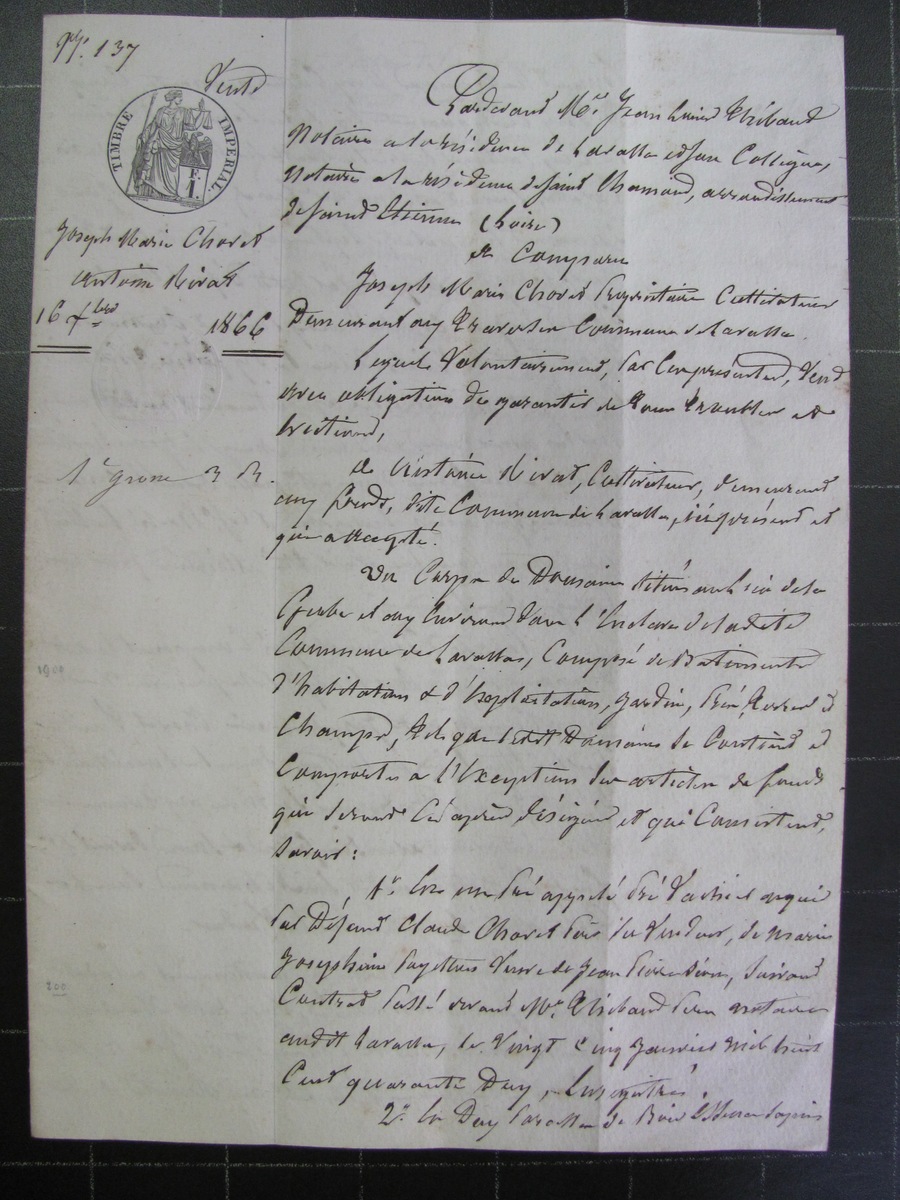 137
Vente
TIMBRE IMPERIAL
F.
1.
Joseph Marie Chorel
Antoine Rivat
16 7bre 1866
1e grosse 3 R.
1900
200
Pardevant Me Jean Louis Thibaud
Notaire a la résidence de Lavalla et son Collègue,
Notaire a la résidence de Saint Chamond, arrondissement
de Saint Etienne (Loire)
a Comparu
Joseph Marie Chorel Propriétaire Cultivateur
Demeurant aux Commune de Lavalla.
Lequel Volontairement, par Ces présentes, Vend
avec obligation de garantir de tous troubles et
Evictions,
a Antoine Rivat, Cultivateur, demeurant
aux fonds, dite Commune de Lavalla, ici présent et
qui accepte.
Un Corps de Domaine situé au lieu de la
et aux Environs dans l'Enclave de ladite
Commune de Lavalla, Composé de Batiments
d'habitation & d'Exploitation, jardin, Pré, Terres &
Champs, tels que ledit Domaine se Contient et
Comporte a l'Exception des articles de fonds
qui seront Ci après désignés et qui Consistent,
savoir:
1o En un Pré appelé Pré acquis
par Défunt Claude Chorel Père du Vendeur, de Marie
Josephine Veuve de Jean Pierre suivant
Contrat passé devant Me Thibaud Père notaire
audit Lavalla, le Vingt Cinq Janvier Mil huit
Cent quarante Deux, Enregistré.
2o En Deux Parcelles de Bois Essence Sapins